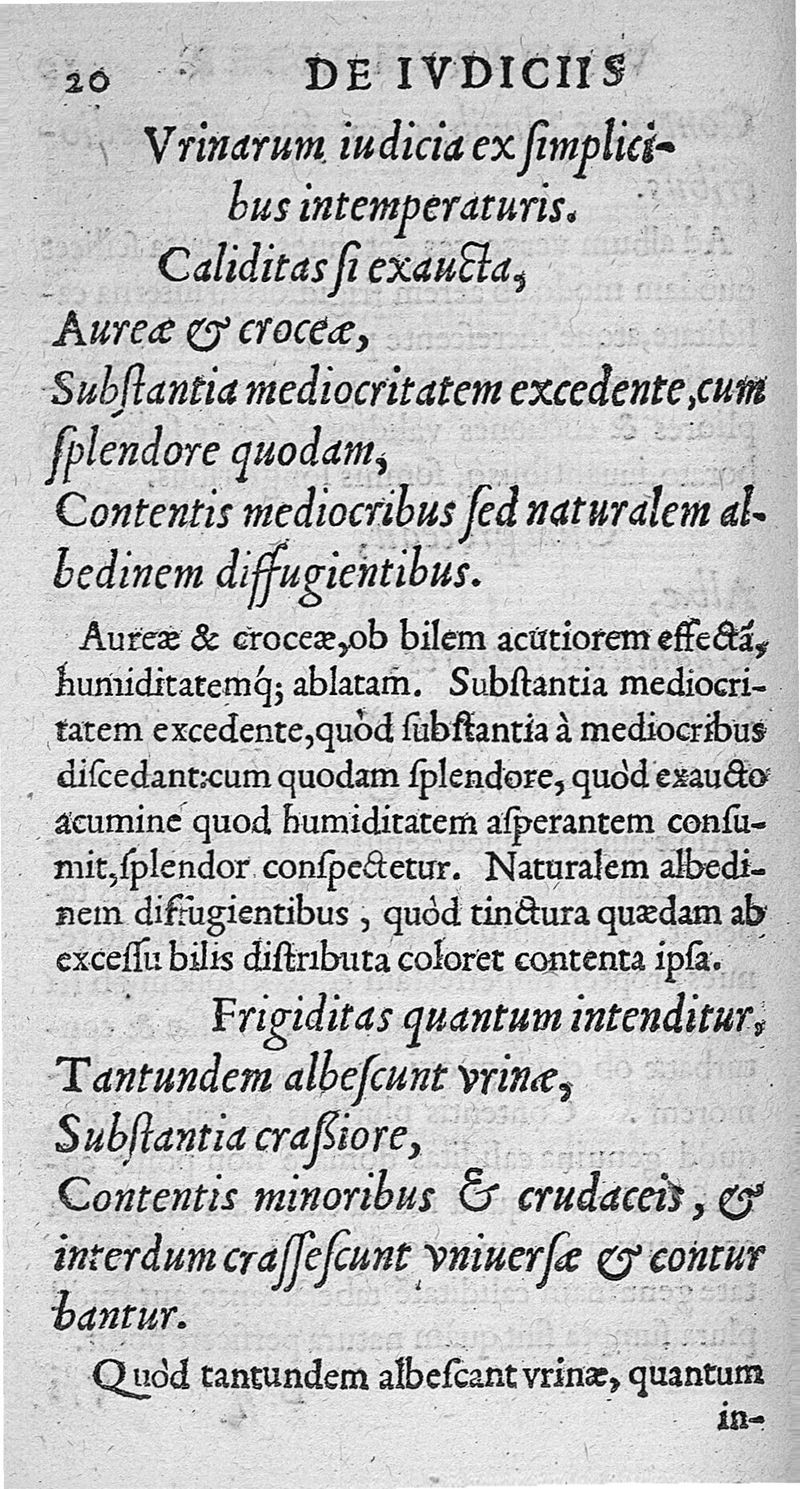 20 DE IVDICIIS
Vrinarum iudicia ex ſimplici-
bus intemperaturis.
Caliditas ſi exaucta,
Aureæ & croceæ,
Subſtantia mediocritatem excedente, cum
ſplendore quodam,
Contentis mediocribus ſed naturalem al-
bedinem diffugientibus.
Aureæ & croceæ, ob bilem acutiorem effectā,
humiditatemq́; ablatam. Subſtantia mediocri-
tatem excedente, quòd ſubſtantia à mediocribus
diſcedant: cum quodam ſplendore, quòd exaucto
acumine quod humiditatem aſperantem conſu-
mit, ſplendor conſpectetur. Naturalem albedi-
nem diffugientibus, quòd tinctura quædam ab
exceſſu bilis diſtributa coloret contenta ipſa.
Frigiditas quantum intenditur,
Tantundem albeſcunt vrinæ,
Subſtantia craßiore,
Contentis minoribus & crudaceis, &
interdum craſſeſcunt vniuerſæ & contur
bantur.
Quòd tantundem albeſcant vrinæ, quantum
in-